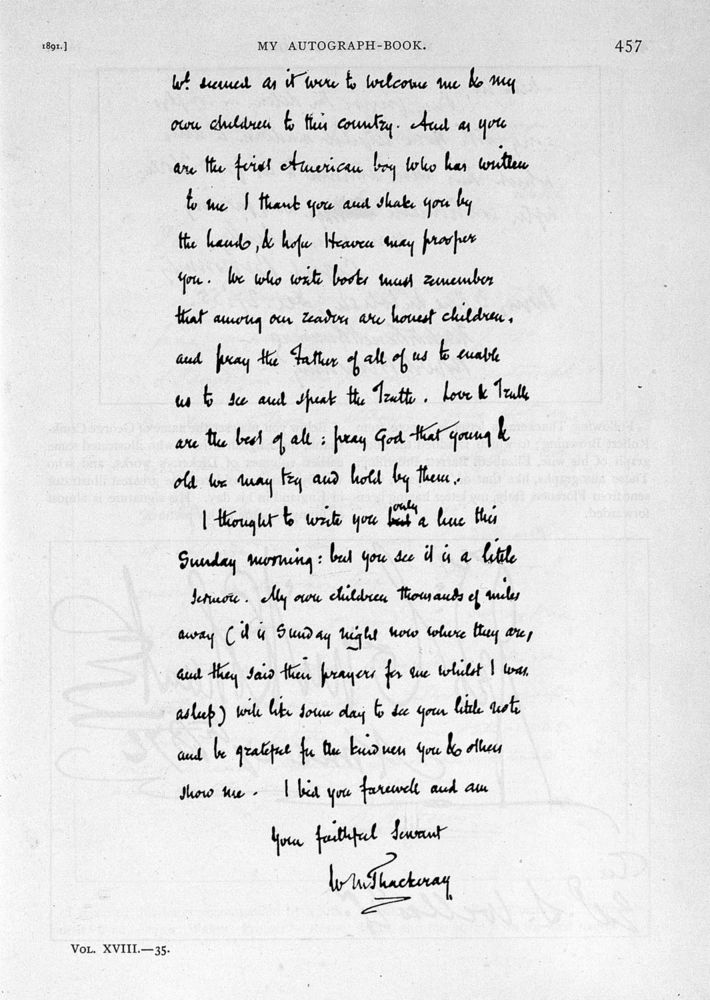 1891.] MY AUTOGRAPH-BOOK. 457
wh seemed as it were to welcome me & my
own children to this country. And as you
are the first American boy who has written
to me I thank you and shake you by
the hand, & hope Heaven may prosper
you. We who write books must remember
that among our readers are honest children,
and pray the Father of all of us to enable
us to see and speak the Truth. Love & Truth
are the best of all: pray God that young &
old we may try and hold by them.
I thought to write you but only a line this
Sunday morning: but you see it is a little
sermon. My own children thousands of miles
away (it is Sunday night now where they are,
and they said their prayers for me whilst I was
asleep) will like some day to see your little note
and be grateful for the kindness you & others
show me. I bid you farewell and am
Your faithful Servant
W M Thackeray
VOL. XVIII.—35.